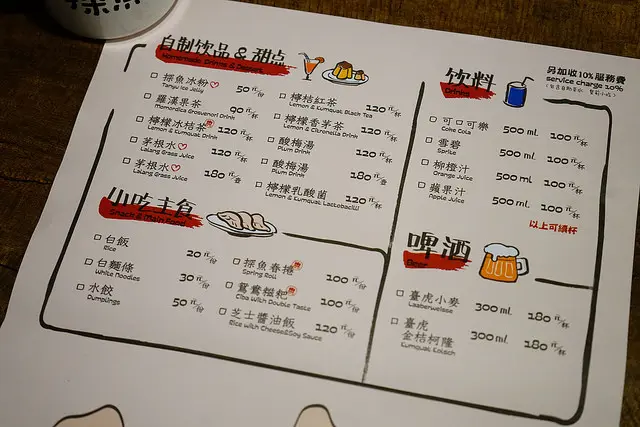 自制饮品 & 甜点
Homemade Drinks & Dessert
探魚冰粉 50元/份
Tanyu Ice Jelly
羅漢果茶 90元/杯
Momordica Grosvenori Drink
檸檬冰桔茶 120元/杯
Lemon & Kumquat Drink
茅根水 120元/杯
Lalang Grass Juice
茅根水 180元/壺
Lalang Grass Juice
檸桔紅茶 120元/杯
Lemon & Kumquat Black Tea
檸檬香茅茶 120元/杯
Lemon & Citronella Drink
酸梅湯 120元/杯
Plum Drink
酸梅湯 180元/壺
Plum Drink
檸檬乳酸菌 120元/杯
Lemon & Kumquat Lactobacilli
小吃主食
Snack & Main Food
白飯 20元/份
Rice
白麵條 30元/份
White Noodles
水餃 50元/份
Dumplings
探魚春捲 100元/份
Spring Roll
鴛鴦糍粑 100元/份
Ciba With Double Taste
芝士醬油飯 120元/份
Rice with Cheese&Soy Sauce
饮料
Drinks
另加收10%服務費
service charge 10%
可口可樂 500 ml 100元/杯
Coke Cola
雪碧 500 ml 100元/杯
Sprite
柳橙汁 500 ml 100元/杯
Orange Juice
蘋果汁 500 ml 100元/杯
Apple Juice
以上可續杯
啤酒
Beer
臺虎小麥 300 ml 180元/杯
Laaberweisse
臺虎
金桔柯隆 300 ml 180元/杯
Kumquat Kolsch